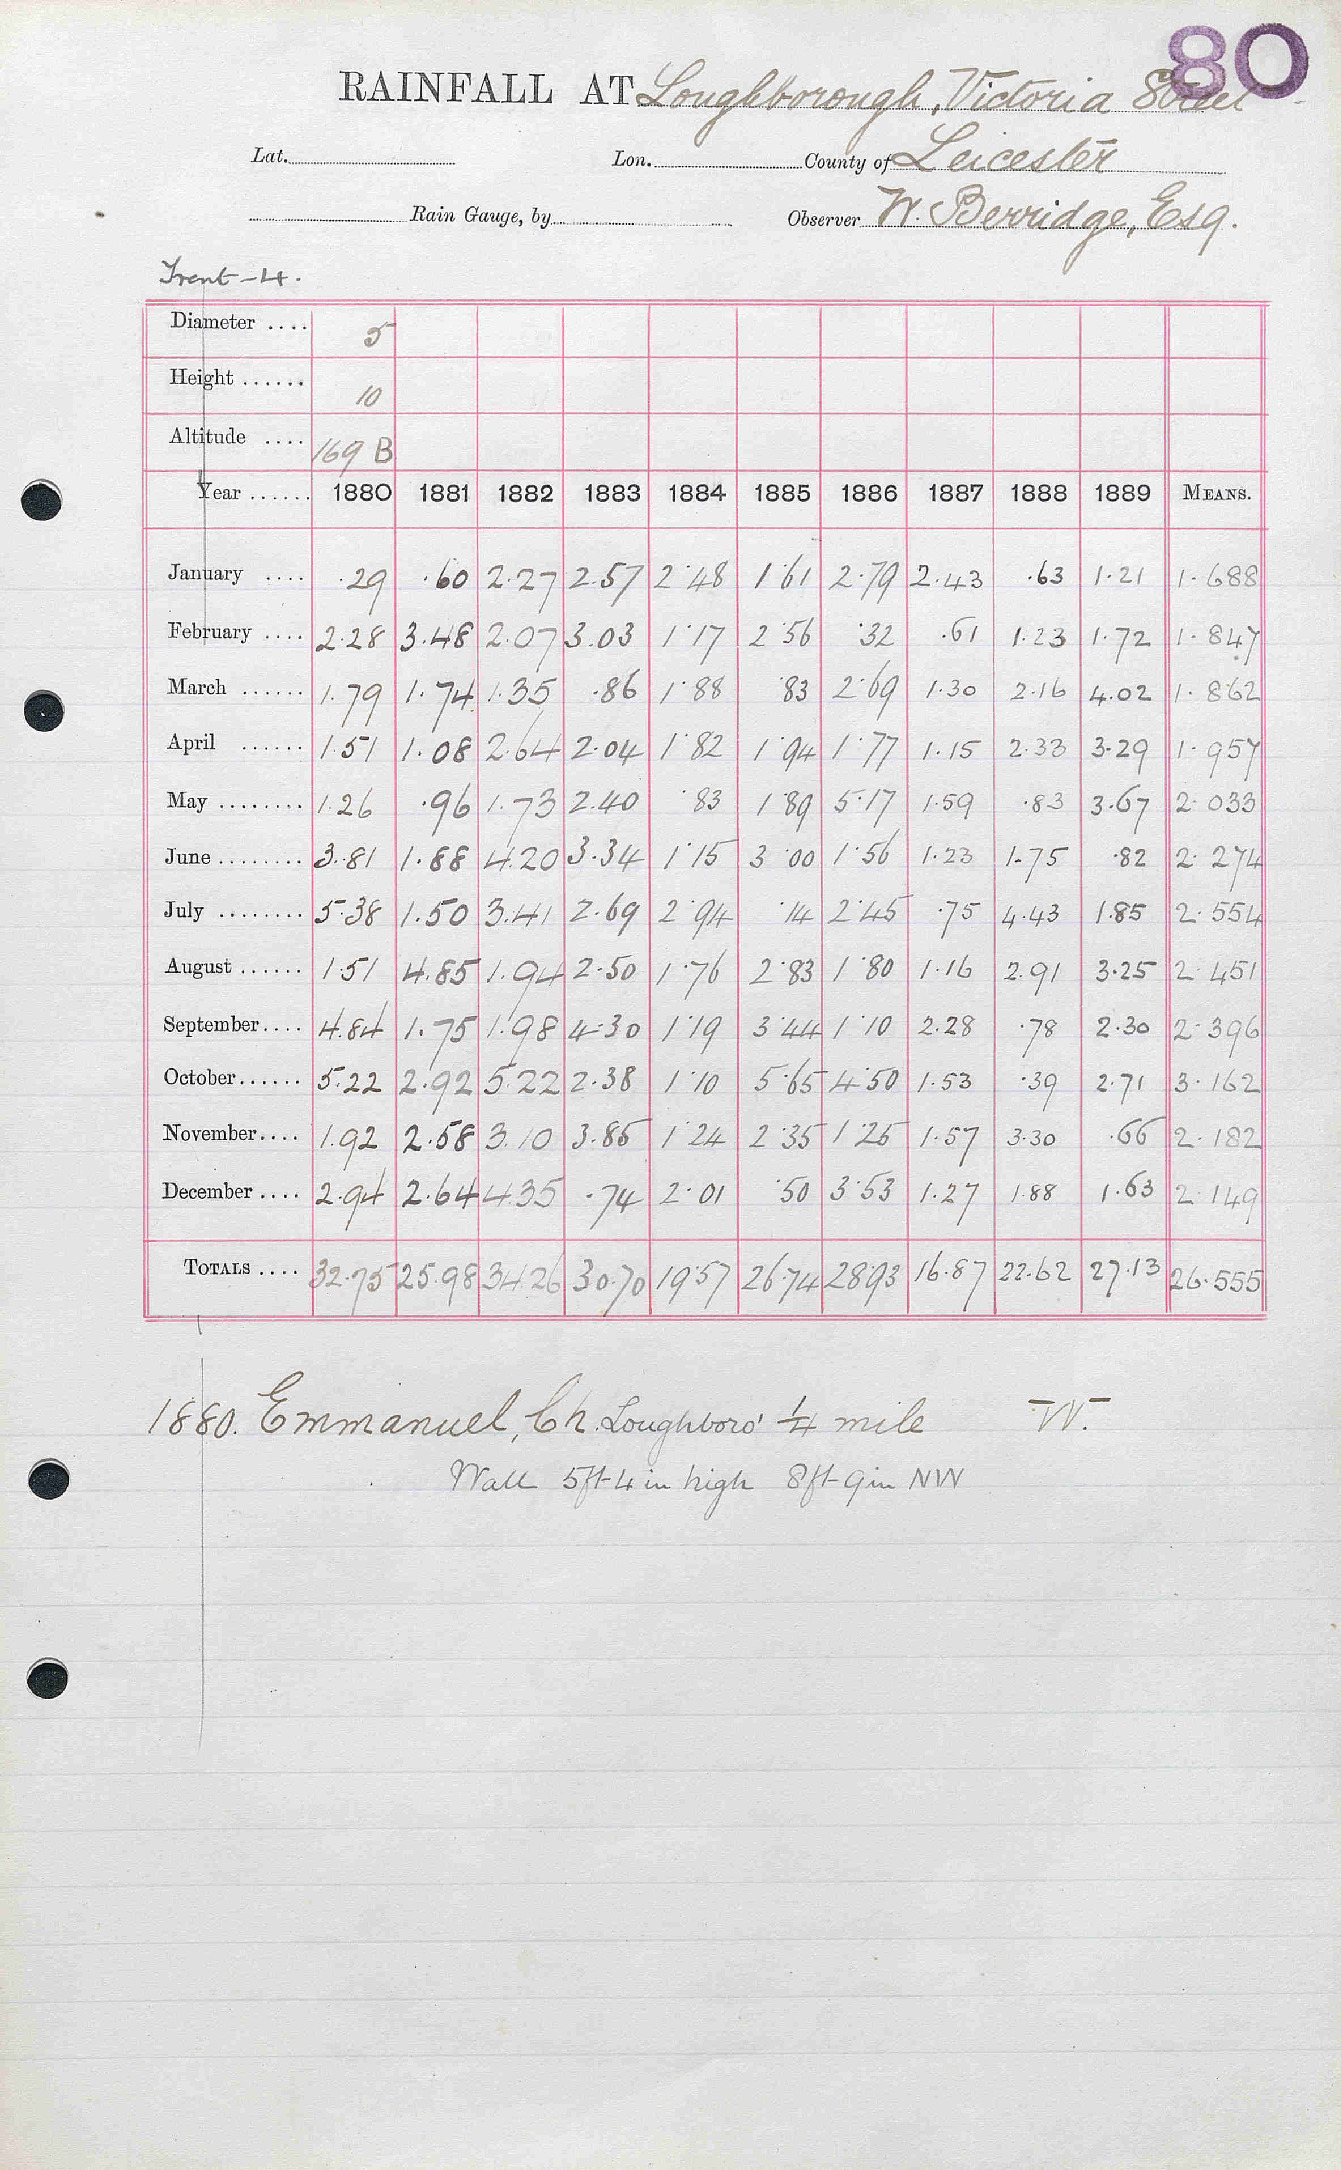 80
RAINFALL AT Loughborough, Victoria Street
Lat. Lon. County of Leicester
Rain Gauge, by Observer W. Berridge, Esq.
Trent-4.
Diameter .... 5
Height ...... 10
Altitude .... 169 B
Year ...... 1880 1881 1882 1883 1884 1885 1886 1887 1888 1889 MEANS.
January .... .29 .60 2.27 2.57 2.48 1.61 2.79 2.43 .63 1.21 1.688
February .... 2.28 3.48 2.07 3.03 1.17 2.56 .32 .61 1.23 1.72 1.847
March ...... 1.79 1.74 1.35 .86 1.88 .83 2.69 1.30 2.16 4.02 1.862
April ...... 1.51 1.08 2.64 2.04 1.82 1.94 1.77 1.15 2.33 3.29 1.957
May ........ 1.26 .96 1.73 2.40 .83 1.89 5.17 1.59 .83 3.67 2.033
June ........ 3.81 1.88 4.20 3.34 1.15 3.00 1.56 1.23 1.75 .82 2.274
July ........ 5.38 1.50 3.41 2.69 2.94 .14 2.45 .75 4.43 1.85 2.554
August ...... 1.51 4.85 1.94 2.50 1.76 2.83 1.80 1.16 2.91 3.25 2.451
September.... 4.84 1.75 1.98 4.30 1.19 3.44 1.10 2.28 .78 2.30 2.396
October...... 5.22 2.92 5.22 2.38 1.10 5.65 4.50 1.53 .39 2.71 3.162
November.... 1.92 2.58 3.10 3.85 1.24 2.35 1.25 1.57 3.30 .66 2.182
December .... 2.94 2.64 4.35 .74 2.01 .50 3.53 1.27 1.88 1.63 2.149
TOTALS .... 32.75 25.98 34.26 30.70 19.57 26.74 28.93 16.87 22.62 27.13 26.555
1880. Emmanuel, Ch. Loughboro' 1/4 mile W.
Wall 5ft 4 in high 8ft 9in NW